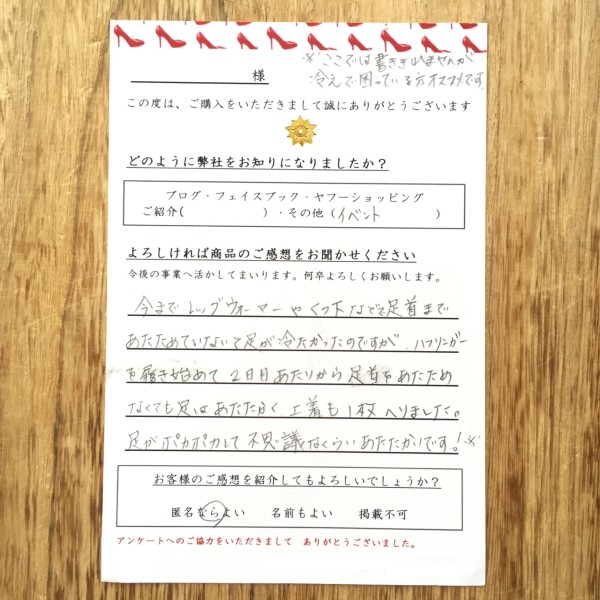 ※ここでは書ききれませんが
冷えで困っている方オススメです
様
この度は、ご購入をいただきまして誠にありがとうございます
どのように弊社をお知りになりましたか？
ブログ・フェイスブック・ヤフーショッピング
ご紹介（　　　　　）・その他（イベント　　　）
よろしければ商品のご感想をお聞かせください
今後の事業へ活かしてまいります。何卒よろしくお願いします。
今までレッグウォーマーやくつ下などで足首まで
あたためていないと足が冷たかったのですが、ハフリンガー
を履き始めて2日目あたりから足首をあたため
なくても足はあたたかく上着も1枚へりました。
足がポカポカして不思議なくらいあたたかいです！※
お客様のご感想を紹介してもよろしいでしょうか？
匿名ならよい　名前もよい　掲載不可
アンケートへのご協力をいただきまして　ありがとうございました。